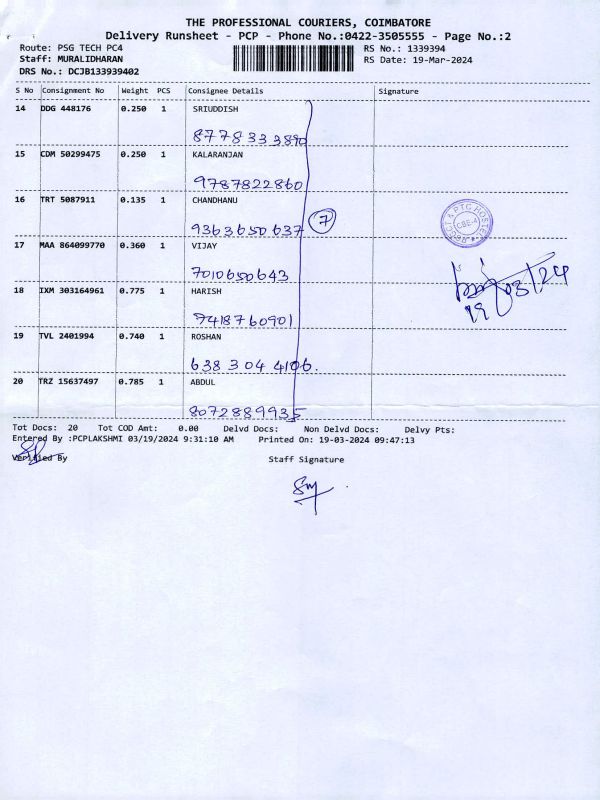 THE PROFESSIONAL COURIERS, COIMBATORE
Delivery Runsheet - PCP - Phone No.:0422-3505555 - Page No.:2
Route: PSG TECH PC4 RS No.: 1339394
Staff: MURALIDHARAN RS Date: 19-Mar-2024
DRS No.: DCJB133939402
S No Consignment No Weight PCS Consignee Details Signature
14 DDG 448176 0.250 1 SRIUDDISH
8778333890
15 CDM 50299475 0.250 1 KALARANJAN
9787822860
16 TRT 5087911 0.135 1 CHANDHANU
9363650637 7
17 MAA 864099770 0.360 1 VIJAY
7010650643
18 IXM 303164961 0.775 1 HARISH
7418760901
19 TVL 2401994 0.740 1 ROSHAN
638 304 4106.
20 TRZ 15637497 0.785 1 ABDUL
8072889935
CBE-4
19/03/24
Tot Docs: 20 Tot COD Amt: 0.00 Delvd Docs: Non Delvd Docs: Delvy Pts:
Entered By :PCPLAKSHMI 03/19/2024 9:31:10 AM Printed On: 19-03-2024 09:47:13
Verified By Staff Signature